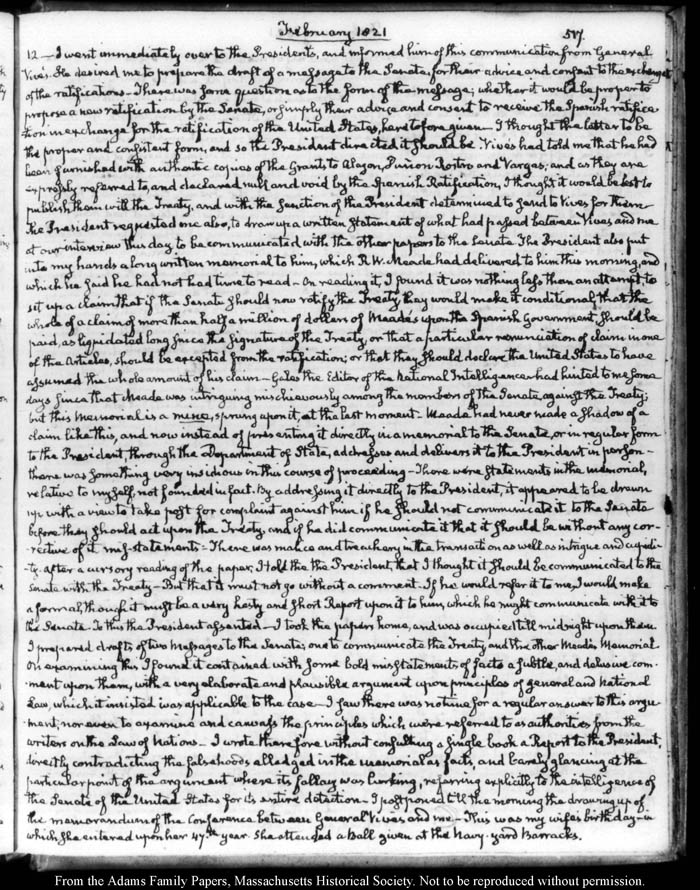 February 1821
517.
12 — I went immediately over to the Presidents, and informed him of this communication from General
Vives. He desired me to prepare the draft of a message to the Senate, for their advice and consent to the exchange
of the ratifications — There was some question as to the form of the message; whether it would be proper to
propose a new ratification by the Senate, or simply their advice and consent to receive the Spanish ratifica-
tion in exchange for the ratification of the United States, heretofore given — I thought the latter to be
the proper and consistent form, and so the President directed it should be. Vives had told me that he had
been furnished with authentic copies of the Grants to Alagon, Puñon Rostro and Vargas, and as they are
expressly referred to, and declared null and void by the Spanish Ratification, I thought it would be best to
publish them with the Treaty, and with the sanction of the President determined to send to Vives for them
The President requested me also, to draw up a written Statement of what had passed between Vives and me
at our interview this day to be communicated with the other papers to the Senate. The President also put
into my hands a long written memorial to him, which R. W. Meade had delivered to him this morning, and
which he said he had not had time to read — On reading it, I found it was nothing less than an attempt to
set up a claim that if the Senate should now ratify the Treaty, they would make it conditional that the
whole of a claim of more than half a million of dollars of Meade's upon the Spanish Government, should be
paid, as liquidated long since the signature of the Treaty, or that a particular renunciation of claim in one
of the Articles, should be excepted from the ratification; or that they should declare the United States to have
assumed the whole amount of his claim — Gales the Editor of the National Intelligencer had hinted to me some
days since that Meade was intriguing mischievously among the members of the Senate, against the Treaty;
but this Memorial is a mine, sprung upon it, at the last moment. Meade, had never made a shadow of a
claim like this, and now instead of presenting it directly in a memorial to the Senate, or in regular form
to the President through the Department of State, addresses and delivers it to the President in person —
there was something very insidious in this course of proceeding — There were statements in the memorial,
relative to myself, not founded in fact. By addressing it directly to the President, it appeared to be drawn
up with a view to take post for complaint against him if he should not communicate it to the Senate
before they should act upon the Treaty, and if he did communicate it that it should be without any cor-
rective of it mis-statements — There was malice and treachery in the transaction as well as intrigue and cupidi-
ty. After a cursory reading of the paper, I told the President, that I thought it should be communicated to the
Senate with the Treaty — But that it must not go without a comment. If he would refer it to me, I would make
a formal, though it must be a very hasty and short Report upon it to him, which he might communicate with it to
the Senate. To this the President assented — I took the papers home, and was occupied till midnight upon them.
I prepared drafts of two Messages to the Senate; one to communicate the Treaty and the other Meade's Memorial
On examining this I found it contained with some bold misstatements of facts a subtle, and delusive com-
ment upon them, with a very elaborate and plausible argument upon principles of general and National
Law, which it insisted was applicable to the case — I saw there was no time for a regular answer to this argu-
ment; nor even to examine and canvass the principles which were referred to as authorities from the
writers on the Law of Nations — I wrote therefore without consulting a single book a Report to the President,
directly contradicting the falsehoods alledged in the memorial as facts, and barely glancing at the
particular point of the argument where its fallacy was lurking, referring explicitly to the intelligence of
the Senate of the United States for its entire detection — I postponed till the morning the drawing up of
the memorandum of the Conference between General Vives and me — This was my wife's birth day — in
which she entered upon her 47th year. She attended a Ball given at the Navy-yard Barracks.
From the Adams Family Papers, Massachusetts Historical Society. Not to be reproduced without permission.